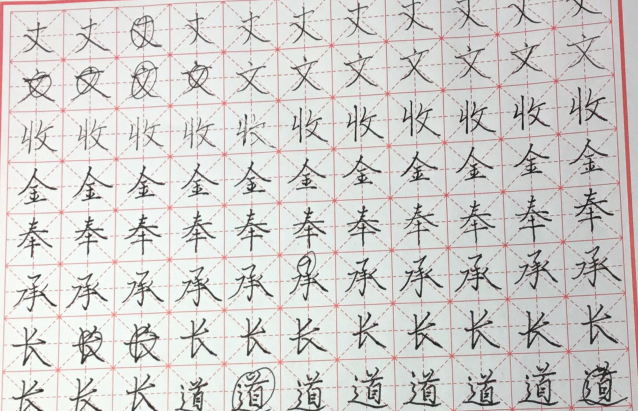 丈丈丈丈丈丈丈丈丈丈丈
文文文文文文文文文文文
收收收收收收收收收收收
金金金金金金金金金金金
奉奉奉奉奉奉奉奉奉奉奉
承承承承承承承承承承承
长长长长长长长长长长长
长长长道道道道道道道道